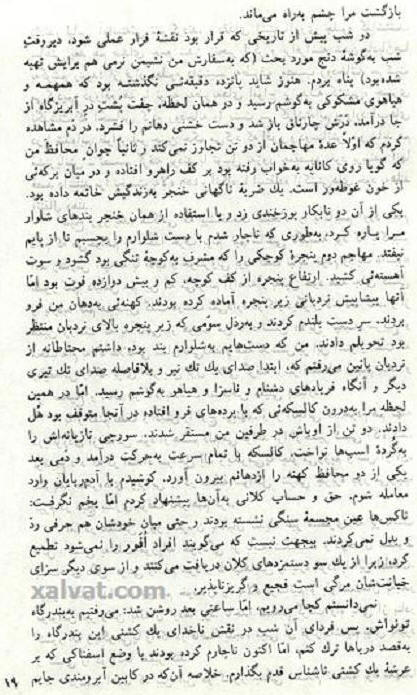 بازگشت مرا چشم به‌راه می‌ماند.
در شب پیش از تاریخی که قرار بود نقشهٔ فرار عملی شود، دیروقت
شب به‌گوشهٔ دنج مورد بحث (که به‌سفارش من نشیمن نرمی هم برایش تهیه
شده‌بود) پناه بردم. هنوز شاید پانزده دقیقه‌ئی نگذشته بود که همهمه و
هیاهوی مشکوکی به‌گوشم رسید و در همان لحظه، جفت پشت در آبریزگاه از
جا درآمد، درش چارتاق باز شد و دست خشنی دهانم را فشرد. در دَم مشاهده
کردم که اولاً عدهٔ مهاجمان از دو تن تجاوز نمی‌کند و ثانیاً جوان محافظ من
که گویا روی کاناپه به‌خواب رفته بود بر کف راهرو افتاده و در میان برکه‌ئی
از خون غوطه‌ور است. یك ضربهٔ ناگهانی خنجر به‌زندگیش خاتمه داده بود.
یکی از آن دو نابکار پوزخندی زد و با استفاده از همان خنجر بندهای شلوار
مرا پاره کرد، به‌طوری که ناچار شدم با دست شلوارم را بچسبم تا از پایم
نیفتد. مهاجم دوم پنجرهٔ کوچکی را که مشرف به‌کوچهٔ تنگی بود گشود و سوت
آهسته‌ئی کشید. ارتفاع پنجره از کف کوچه، کم و بیش دوازده فوت بود امّا
آنها پیشاپیش نردبانی زیر پنجره آماده کرده بودند. کهنه‌ئی به‌دهان من فرو
بردند، سر دست بلندم کردند و به‌رذل سومی که زیر پنجره بالای نردبان منتظر
بود تحویلم دادند. من که دست‌هایم به‌شلوارم بند بود، داشتم محتاطانه از
نردبان پائین می‌رفتم که، ابتدا صدای یك تك تیر و بلافاصله صدای تك تیری
دیگر و آنگاه فریادهای دشنام و ناسزا و هیاهو به‌گوشم رسید. امّا در همین
لحظه مرا به‌درون کالسکه‌ئی که با پرده‌های فرو افتاده در آنجا متوقف بود هُل
دادند. دو تن از اوباش در طرفین من مستقر شدند. سورچی تازیانه‌اش را
به‌گُردهٔ اسب‌ها نواخت، کالسکه با تمام سرعت به‌حرکت درآمد و دمی بعد
یکی از دو محافظ کهنه را ازدهانم بیرون آورد. کوشیدم با آدم‌ربایان وارد
معامله شوم. حق و حساب کلانی به‌آن‌ها پیشنهاد کردم امّا یخم نگرفت:
ناکس‌ها عین مجسمهٔ سنگی نشسته بودند و حتی میان خودشان هم حرفی رد
و بدل نمی‌کردند. بیجهت نیست که می‌گویند افراد اُفور را نمی‌شود تطمیع
کرد، زیرا از یك سو دستمزدهای کلان دریافت می‌کنند و از سوی دیگر سزای
خیانت‌شان مرگی است فجیع و گریزناپذیر.
نمی‌دانستم کجا می‌رویم. امّا ساعتی بعد روشن شد: می‌رفتیم به‌بندرگاه
توئواش. پس فردای آن شب در نقش ناخدای یك کشتی این بندرگاه را
به‌قصد دریاها ترك کنم، امّا اکنون ناچارم کرده بودند با وضع اسفناکی که بر
عرشهٔ یك کشتی ناشناس قدم بگذارم. خلاصه آن‌که در کابین آبرومندی جایم
۱۹
xalvat.com